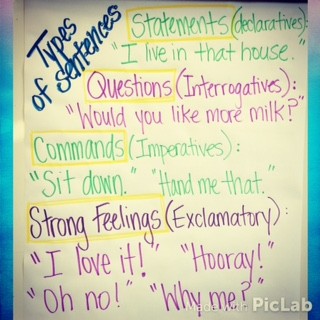 Types of Sentences
Statements (declaratives):
"I live in that house."
Questions (Interrogatives):
"Would you like more milk?"
Commands (Imperatives):
"Sit down." "Hand me that."
Strong Feelings (Exclamatory):
"I love it!" "Hooray!"
"Oh no!" "Why me?"
Made with PicLab